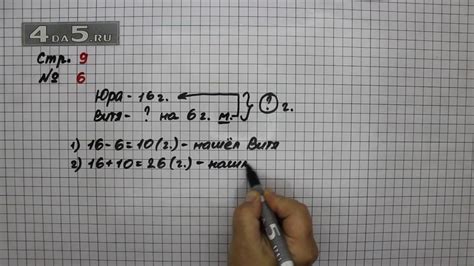 4DA5.RU
Стр. 9
№ 6
Юра - 16 г.
Витя - ? на 6 г. м. ? г.
1) 16 - 6 = 10 (г.) - нашёл Витя
2) 16 + 10 = 26 (г.) - наш
5